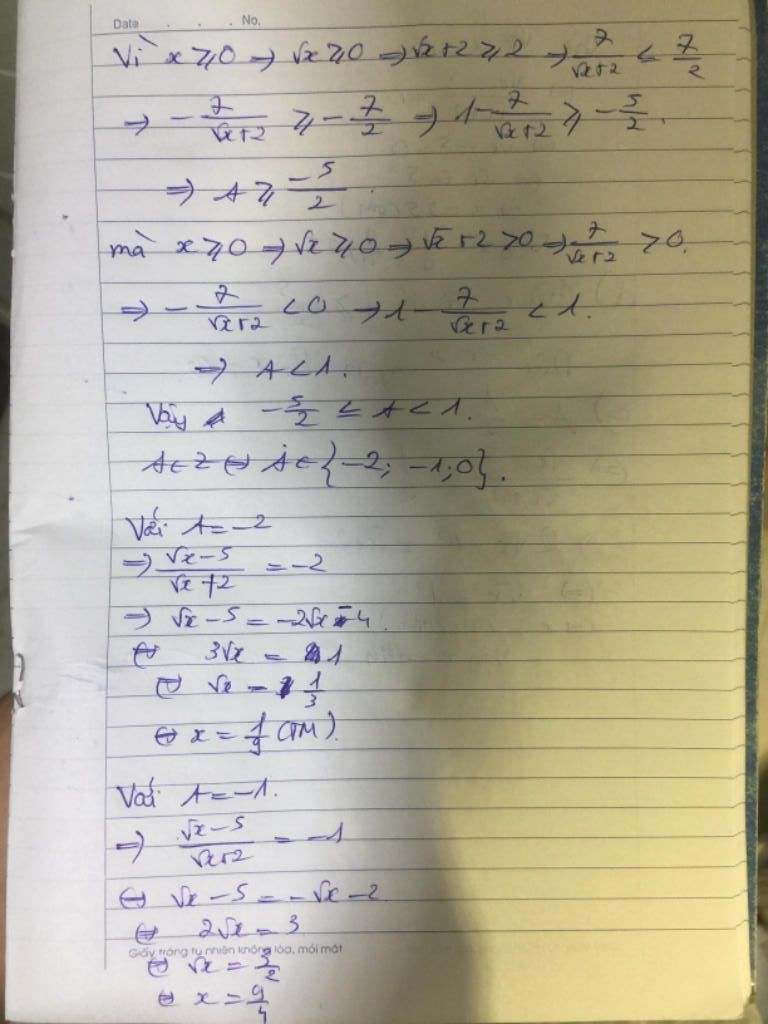 Date . . . No.
Vì x ⩾ 0 ⇒ √x ⩾ 0 ⇒ √x+2 ⩾ 2 ⇒ 7/(√x+2) ≤ 7/2
⇒ -7/(√x+2) ⩾ -7/2 ⇒ 1-7/(√x+2) ⩾ -5/2.
⇒ A ⩾ -5/2.
mà x ⩾ 0 ⇒ √x ⩾ 0 ⇒ √x+2 > 0 ⇒ 7/(√x+2) > 0.
⇒ -7/(√x+2) < 0 → 1-7/(√x+2) < 1.
⇒ A < 1.
Vậy -5/2 ≤ A < 1.
A ∈ Z ⇔ A ∈ {-2; -1; 0}.
Với A = -2
⇒ (√x-5)/(√x+2) = -2
⇒ √x-5 = -2√x-4.
⇔ 3√x = 1
⇔ √x = 1/3
⇔ x = 1/9 (TM).
Với A = -1.
⇒ (√x-5)/(√x+2) = -1
⇔ √x-5 = -√x-2.
⇔ 2√x = 3
Giấy trắng tự nhiên không lóa, mỏi mắt
⇔ √x = 3/2
⇔ x = 9/4